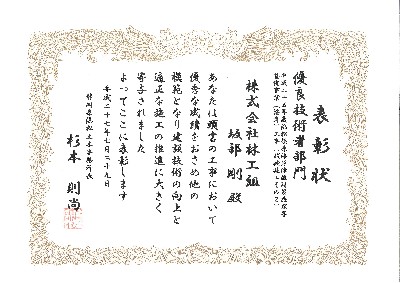 表彰状
優良技術者部門
株式会社林工組
剛 殿
あなたは頭書の工事において
優秀な成績をおさめ他の
模範となり建設技術の向上と
適正な施工の推進に大きく
寄与されました
よってここに表彰します
平成二十七年七月二十九日
杉本 則尚